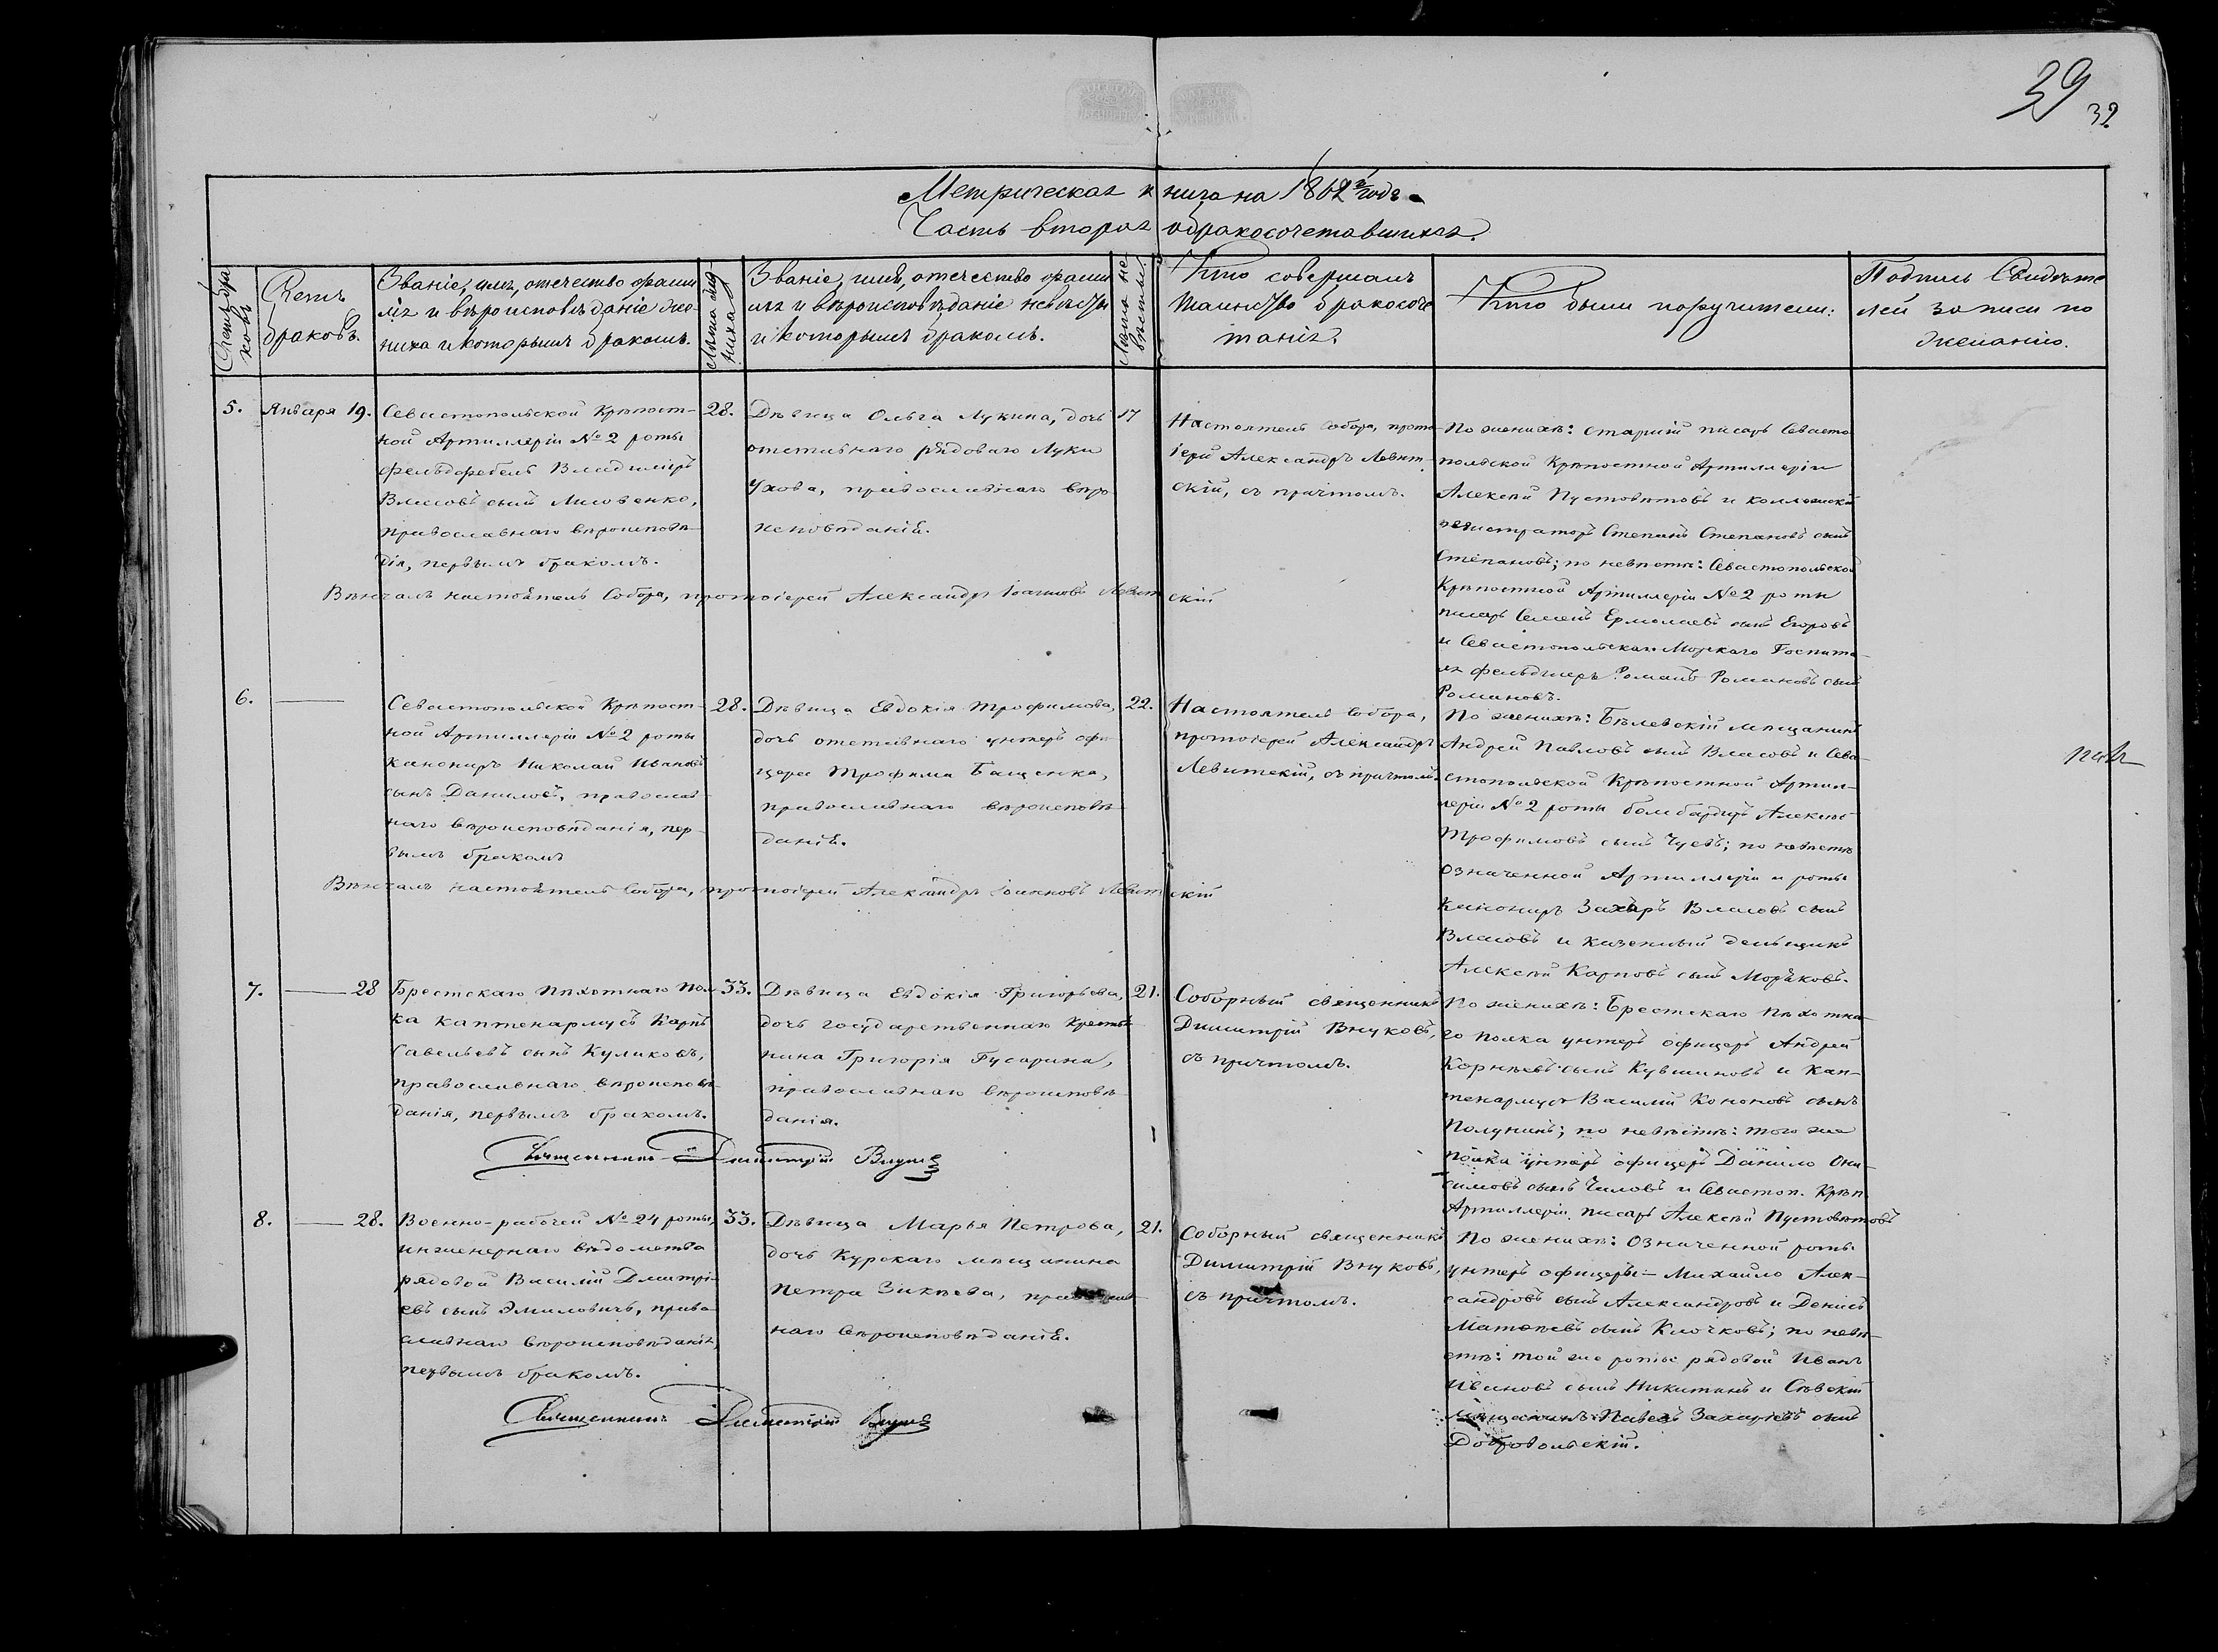 39
32
Метрическая книга на 1862й годъ.
Часть вторая о бракосочетавшихся.
Счетъ бра
ковъ
Счетъ
браковъ.
Званіе, имя, отечество, фами
лія и вѣроисповѣданіе же-
ниха и которымъ бракомъ.
Лѣта же-
ниха
Званіе, имя, отечество фами
лія и вѣроисповѣданіе невѣсты
и которымъ бракомъ.
Лѣта не
вѣсты.
Кто совершалъ
таинство бракосоче
танія.
Кто были поручители:
Подпись свидѣте
лей записи по
желанію.
5.
Января 19.
Севастопольской Крѣпост-
ной Артиллеріи № 2 роты
фельдфебель Владиміръ
Власовъ сынъ Лисовенко,
православнаго вѣроисповѣ-
дія, первымъ бракомъ.
28.
Дѣвица Ольга Лукина, дочь
отставнаго рядоваго Луки
Ухова, православнаго вѣро
исповѣданія.
17
Настоятель Собора, прото-
іерей Александръ Левит-
скій, съ причтомъ.
По женихѣ: старшій писарь Севасто
польской Крѣпостной Артиллеріи
Алексѣй Пустовѣтовъ и коллежскій
регистраторъ Степанъ Степановъ сынъ
Степановъ; по невѣстѣ: Севастопольской
Крѣпостной Артиллеріи № 2 роты
писарь Семенъ Ермолаевъ сынъ Егоровъ
и Севастопольскаго Морскаго Госпита-
ля фельдшеръ Романъ Романовъ сынъ
Романовъ.
Вѣнчалъ настоятель Собора, протоіерей Александръ Іоанновъ Левитскій
6.
Севастопольской Крѣпост-
ной Артиллеріи № 2 роты
канониръ Николай Ивановъ
сынъ Даниловъ, православ-
наго вѣроисповѣданія, пер-
вымъ бракомъ
28.
Дѣвица Евдокія Трофимова,
дочь отставнаго унтеръ офи-
цера Трофима Бащенка,
православнаго вѣроисповѣ-
данія.
22.
Настоятель Собора,
протоіерей Александръ
Левитскій, съ причтомъ.
По женихѣ: Бѣлевскій мѣщанинъ
Андрей Павловъ сынъ Власовъ и Сева-
стопольской Крѣпостной Артил-
леріи № 2 роты бомбардиръ Алексѣй
Трофимовъ сынъ Чуевъ; по невѣстѣ
означенной Артиллеріи и роты
канониръ Захаръ Власовъ сынъ
Власовъ и казенный деньщикъ
Алексѣй Карповъ сынъ Моряковъ.
Вѣнчалъ настоятель Собора, протоіерей Александръ Іоанновъ Левитскій
7.
28
Брестскаго пѣхотнаго Пол-
ка каптенармусъ Карпъ
Савельевъ сынъ Куликовъ,
православнаго вѣроисповѣ-
данія, первымъ бракомъ.
33.
Дѣвица Евдокія Григорьева,
дочь государственнаго крестья
нина Григорія Гусарина,
православнаго вѣроисповѣ-
данія.
21.
Соборный священникъ
Димитрій Внуковъ,
съ причтомъ.
По женихѣ: Брестскаго пѣхотна-
го полка унтеръ офицеръ Андрей
Корнѣевъ сынъ Кувшиновъ и кап-
тенармусъ Василій Кононовъ сынъ
Полунинъ; по невѣстѣ: того же
полка унтеръ офицеръ Данило Они-
симовъ сынъ Чиловъ и Севастоп. Крѣп.
Артиллеріи писарь Алексѣй Пустовѣтовъ
Священникъ Димитрій Внуковъ
8.
28.
Военно-рабочей № 24 роты,
инженернаго вѣдомства
рядовой Василій Дмитрі-
евъ сынъ Эмиловичъ, право-
славнаго вѣроисповѣданія,
первымъ бракомъ.
33.
Дѣвица Марья Петрова,
дочь Курскаго мѣщанина
Петра Зикѣева, православ-
наго вѣроисповѣданія.
21.
Соборный священникъ
Димитрій Внуковъ,
съ причтомъ.
По женихѣ: означенной роты
унтеръ офицеры - Михайло Алек-
сандровъ сынъ Александровъ и Денисъ
Матвѣевъ сынъ Клочковъ; по невѣ-
стѣ: той же роты рядовой Иванъ
Ивановъ сынъ Никитинъ и Сѣвскій
мѣщанинъ Павелъ Захаріевъ сынъ
Добровольскій.
Священникъ Димитрій Внуковъ